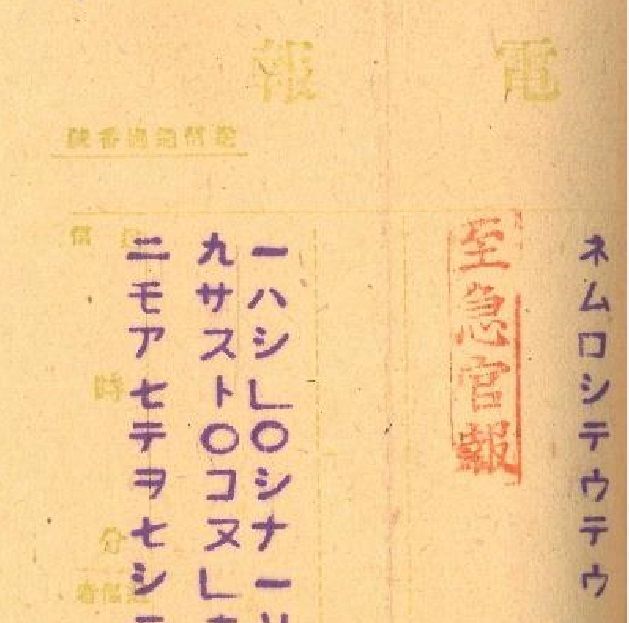 電報
ネムロシテウテウ
至急官報
一ハシ乚〇シナ一
九サスト〇コヌ乚
ニモアセテヲセシ
時
分